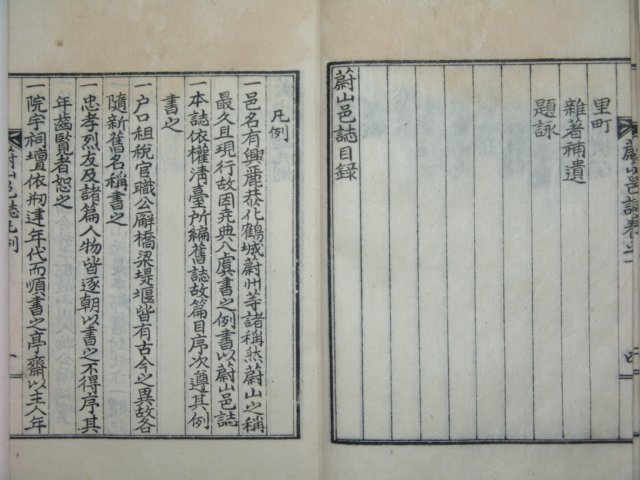 里町
雜著補遺
題詠
蔚山邑誌目錄
凡例
一邑名有興麗恭化鶴城蔚州等諸稱然蔚山之稱
最久且現行故因堯典入虞書之例書以蔚山邑誌
一本誌依權淸臺所編舊誌故篇目序次遵其例
書之
一户口租稅官職公廨橋梁堤堰皆有古今之異故各
隨新舊名稱書之
一忠孝烈友及諸篇人物皆逐朝以書之不得序其
年齒賢者恕之
一院宇祠壇依刱建年代而順書之亭齋以主人年
蔚山邑誌凡例
一